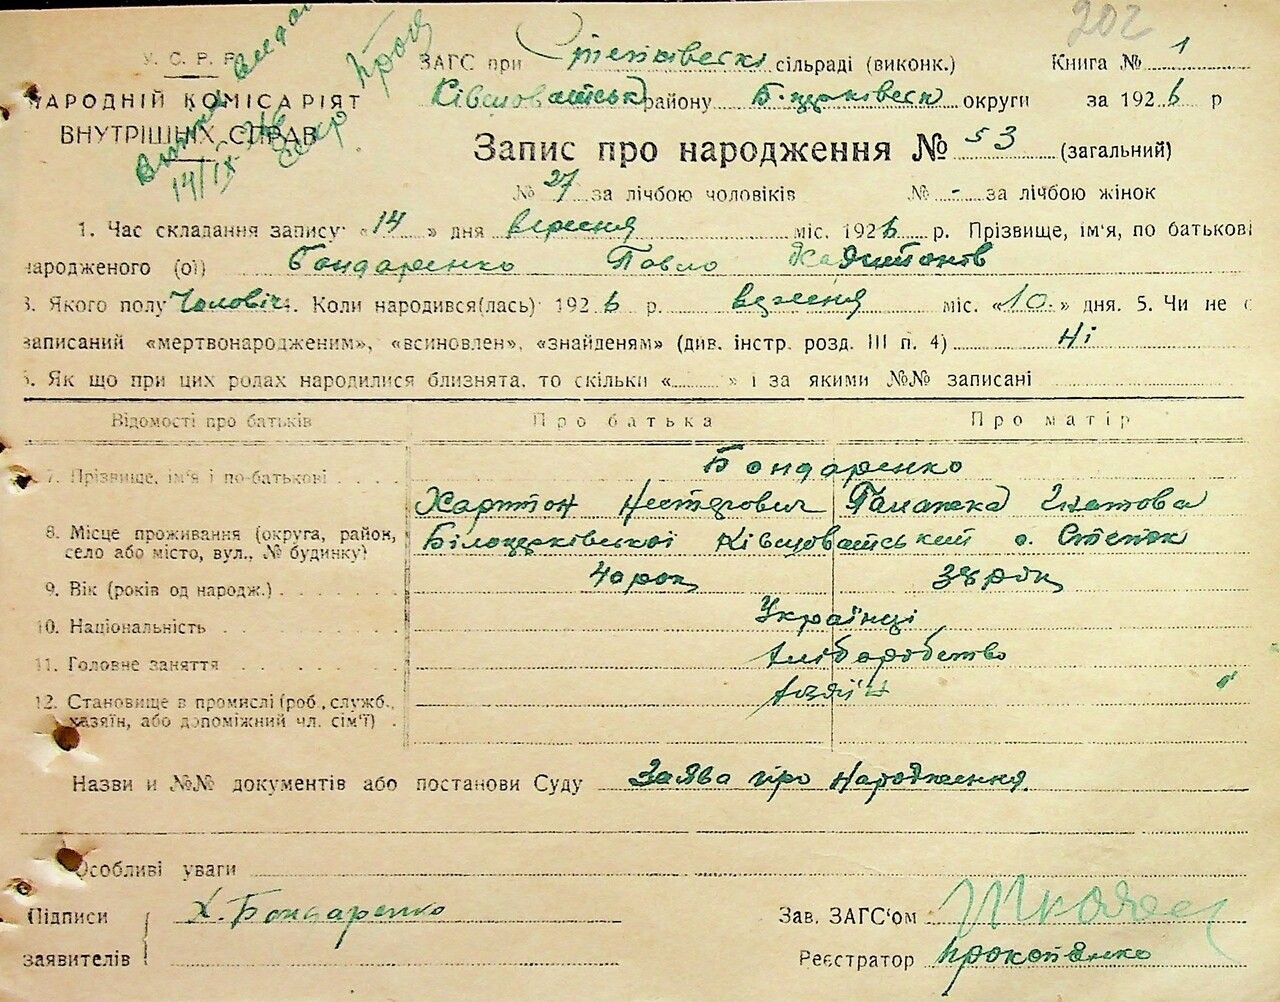 202
У. С. Р. Р.
НАРОДНІЙ КОМІСАРІЯТ
ВНУТРІШНІХ СПРАВ
14/IX
ЗАГС при Степківескі сільраді (виконк.) Книга № 1
району Б-церківськ округи за 1926 р
Запис про народження № 53 (загальний)
№ 27 за лічбою чоловіків № - за лічбою жінок
1. Час складання запису: «14» дня вересня міс. 1926 р. Прізвище, ім'я, по батькові
народженого (ої) Бондаренко Павло Харитонів
3. Якого полу Чоловіч. Коли народився(лась) 1926 р. вересня міс. «10» дня. 5. Чи не є
записаний «мертвонародженим», «всиновлен», «знайденям» (див. інстр. розд. III п. 4) Ні
6. Як що при цих родах народилися близнята, то скільки « » і за якими №№ записані
Відомості про батьків Про батька Про матір
7. Прізвище, ім'я і по-батькові Бондаренко
Харитон Нестерович Палажка Гнатова
8. Місце проживання (округа, район, село або місто, вул., № будинку) Білоцерківської Ківшоватський с. Степок
9. Вік (років од народж.) 40 рок 38 рок
10. Національність Українці
11. Головне заняття Хліборобство
12. Становище в промислі (роб., служб., хазяїн, або допоміжний чл. сім'ї) хазяїн "
Назви и №№ документів або постанови Суду Заява про народження.
Особливі уваги
Підписи заявителів Х. Бондаренко
Зав. ЗАГС'ом
Реєстратор Прокопенко